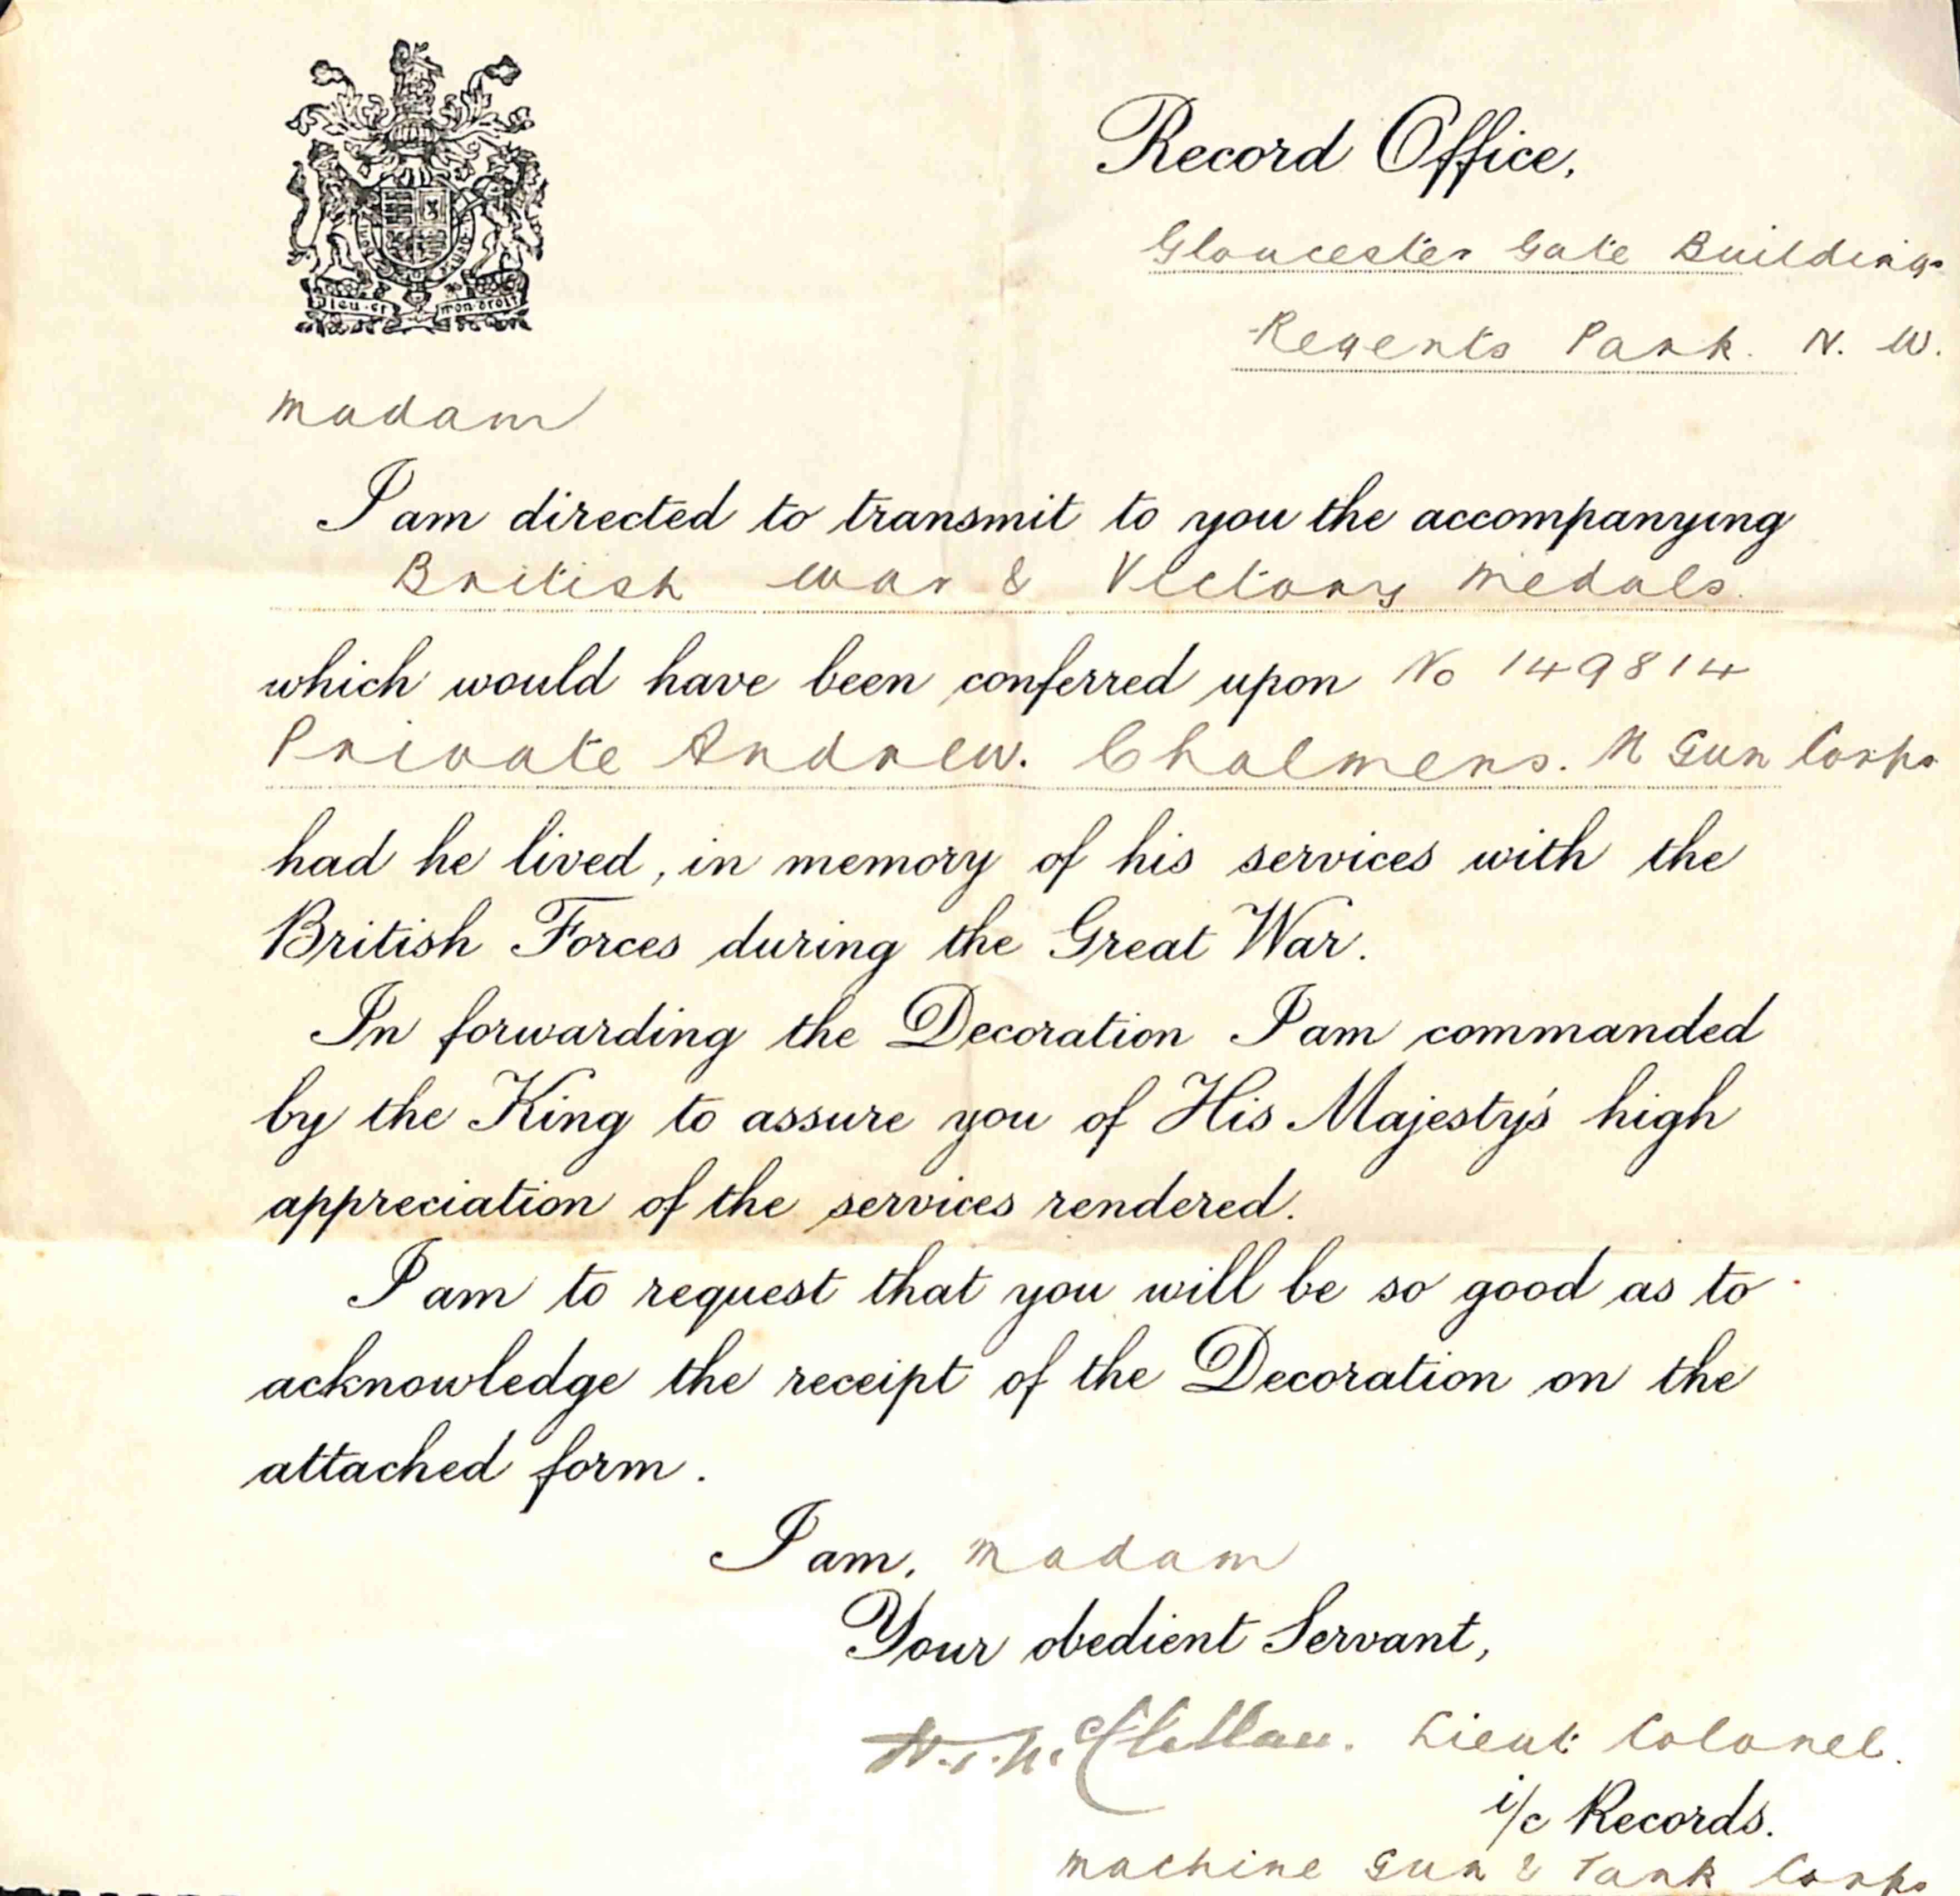 Dieu et mon droit
Record Office,
Gloucester Gate Buildings
Regents Park. N. W.
Madam
I am directed to transmit to you the accompanying
British War & Victory Medals.
which would have been conferred upon No 149814
Private Andrew. Chalmers. M Gun Corps
had he lived, in memory of his services with the
British Forces during the Great War.
In forwarding the Decoration I am commanded
by the King to assure you of His Majesty's high
appreciation of the services rendered.
I am to request that you will be so good as to
acknowledge the receipt of the Decoration on the
attached form.
I am, Madam
Your obedient Servant,
Lieut Colonel.
i/c Records.
Machine Gun & Tank Corps